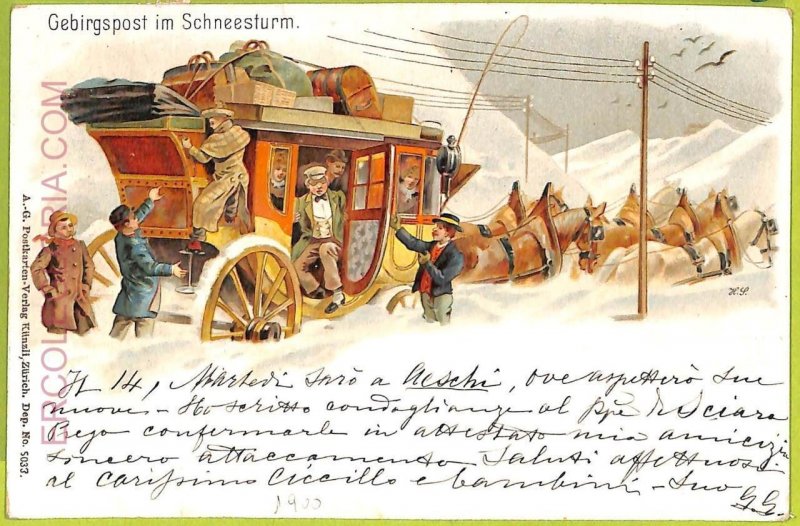 Gebirgspost im Schneesturm.
H. S.
Il 14, Martedì sarò a Aeschi, ove aspetterò sue
nuove - Ho scritto condoglianze al Ppe di Sciara
Prego confermarle in attestato mia amicizia
sincero attaccamento. Saluti affettuosi
al carissimo Ciccillo e bambini - Suo G.G.
1900
A.-G. Postkarten-Verlag Künzli, Zürich. Dep. No. 5037.
ERCOLARIA.COM